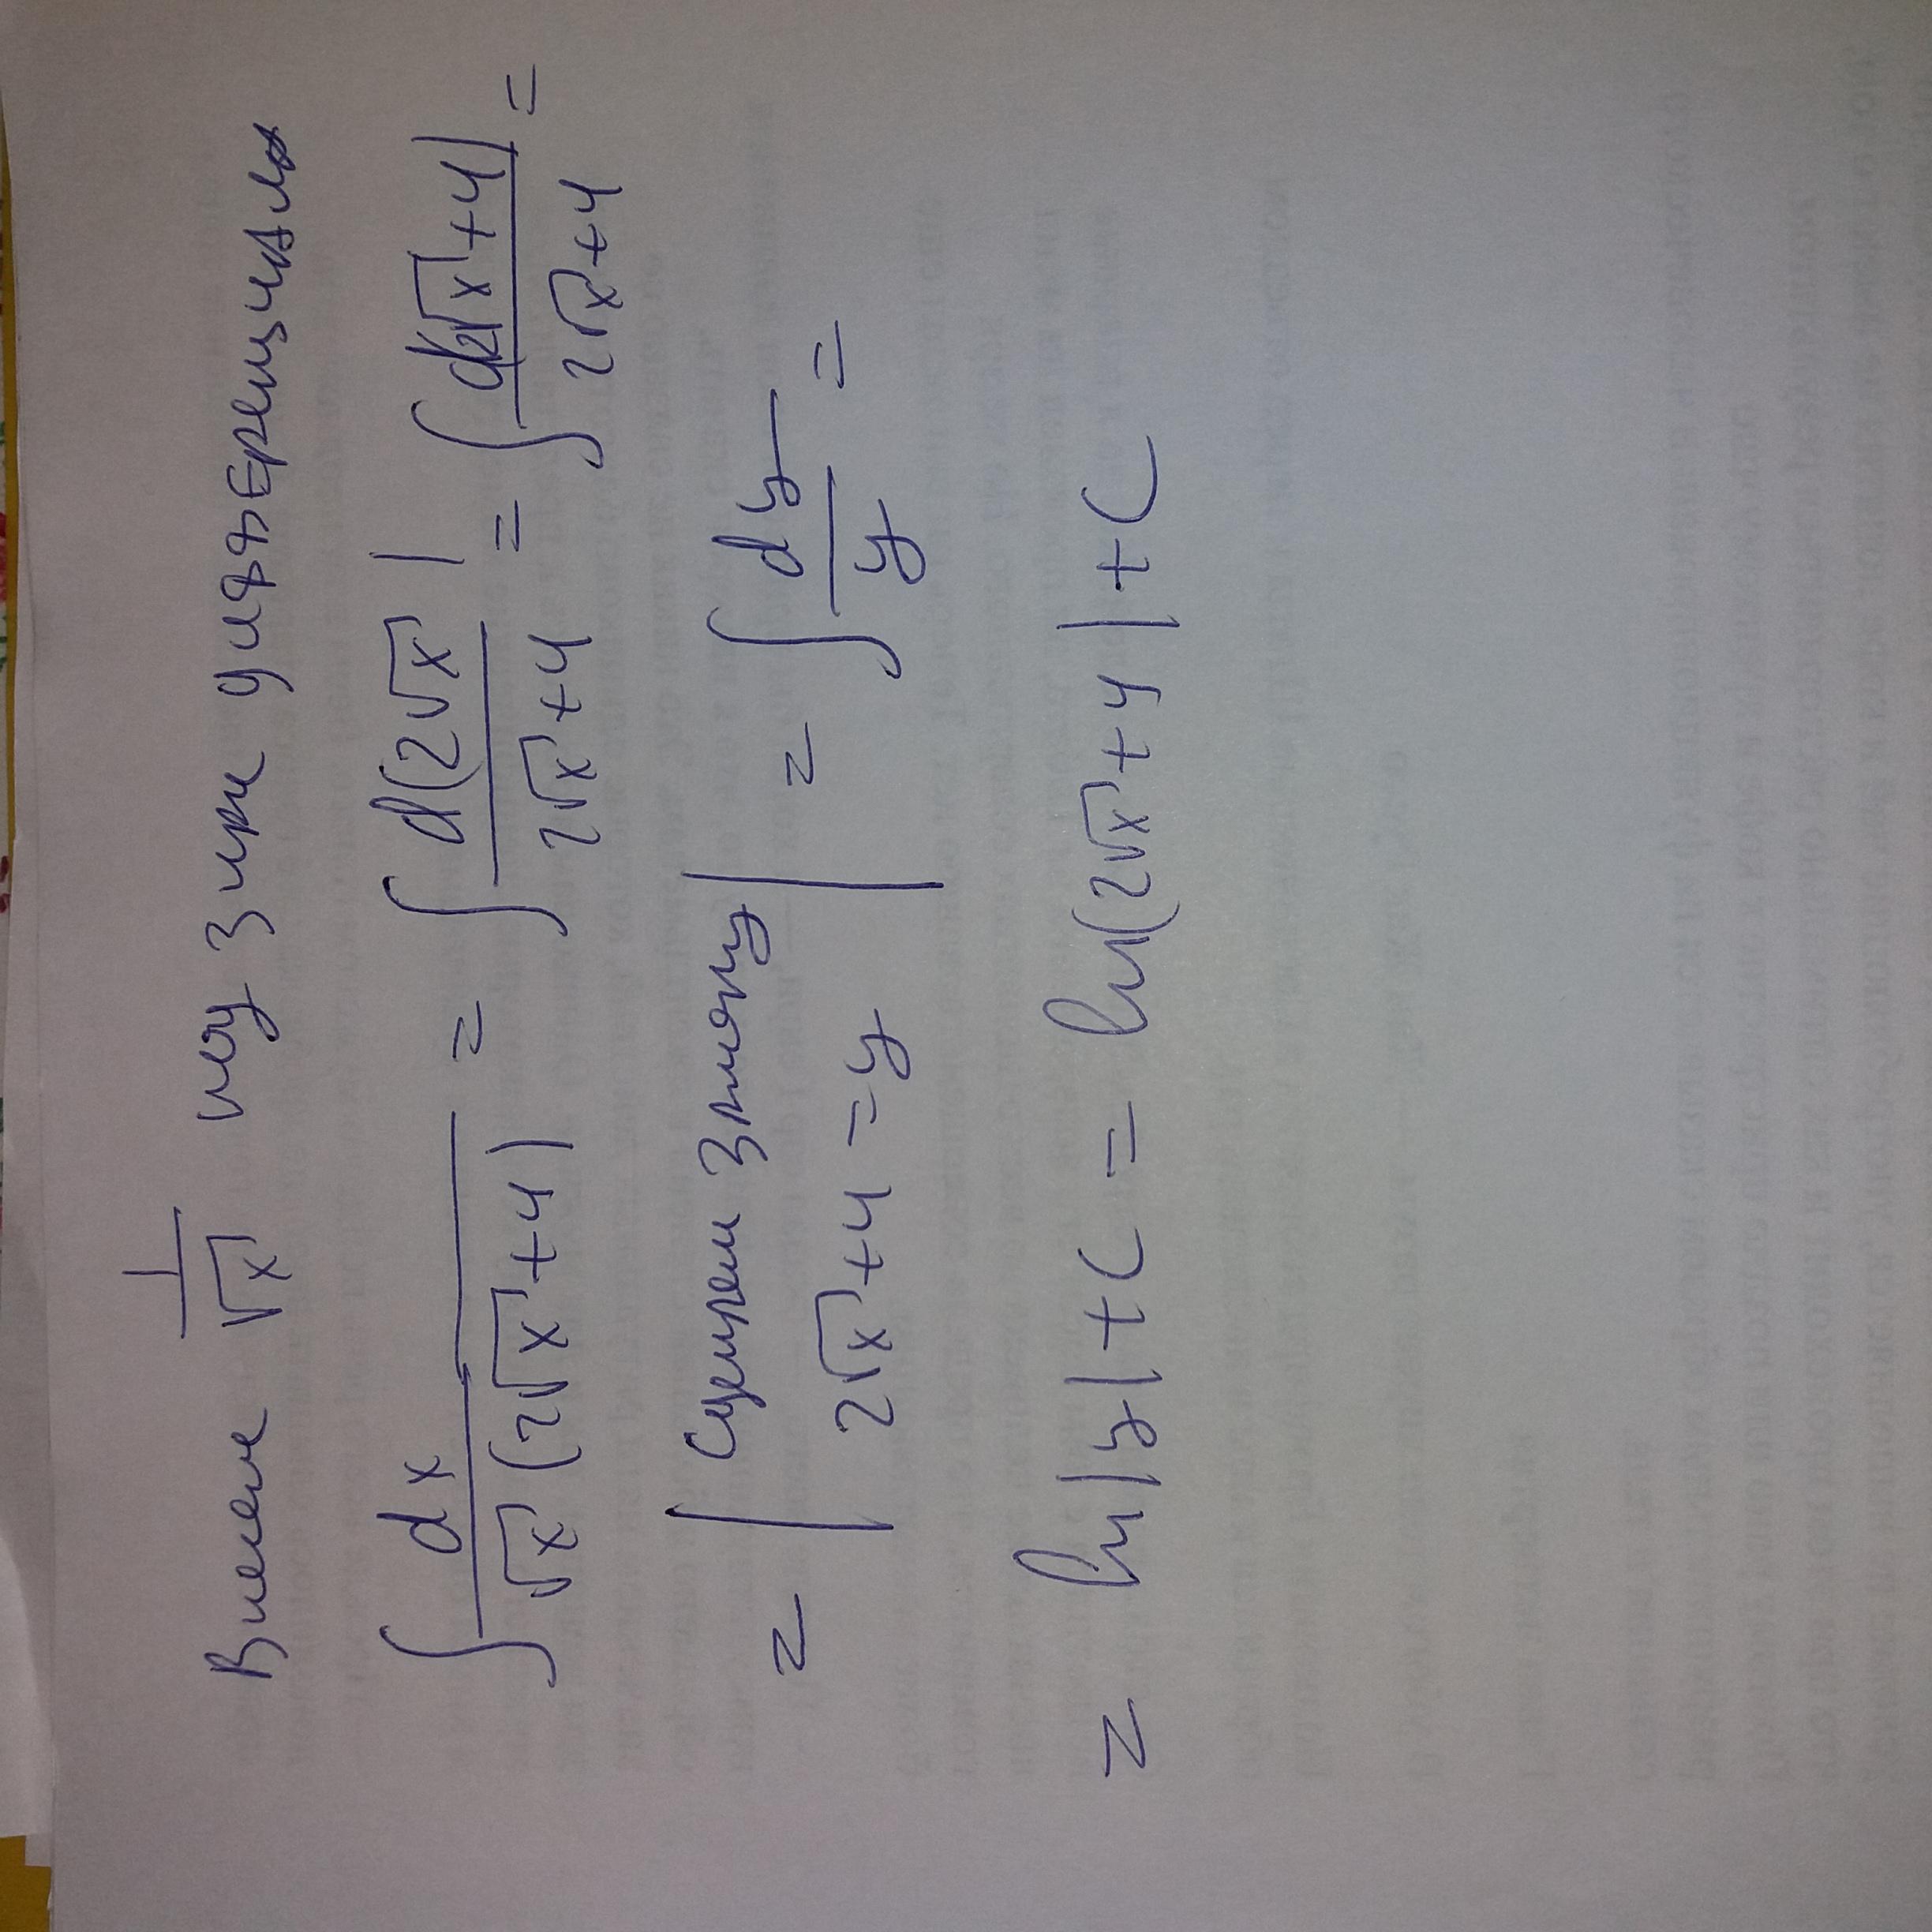 Внесем 1/√x под знак дифференциала
∫ dx / √x (2√x + 4) = ∫ d(2√x) / 2√x + 4 = ∫ d(2√x + 4) / 2√x + 4 =
= | Сделаем замену 2√x + 4 = y | = ∫ dy / y =
= ln |y| + C = ln(2√x + 4) + C